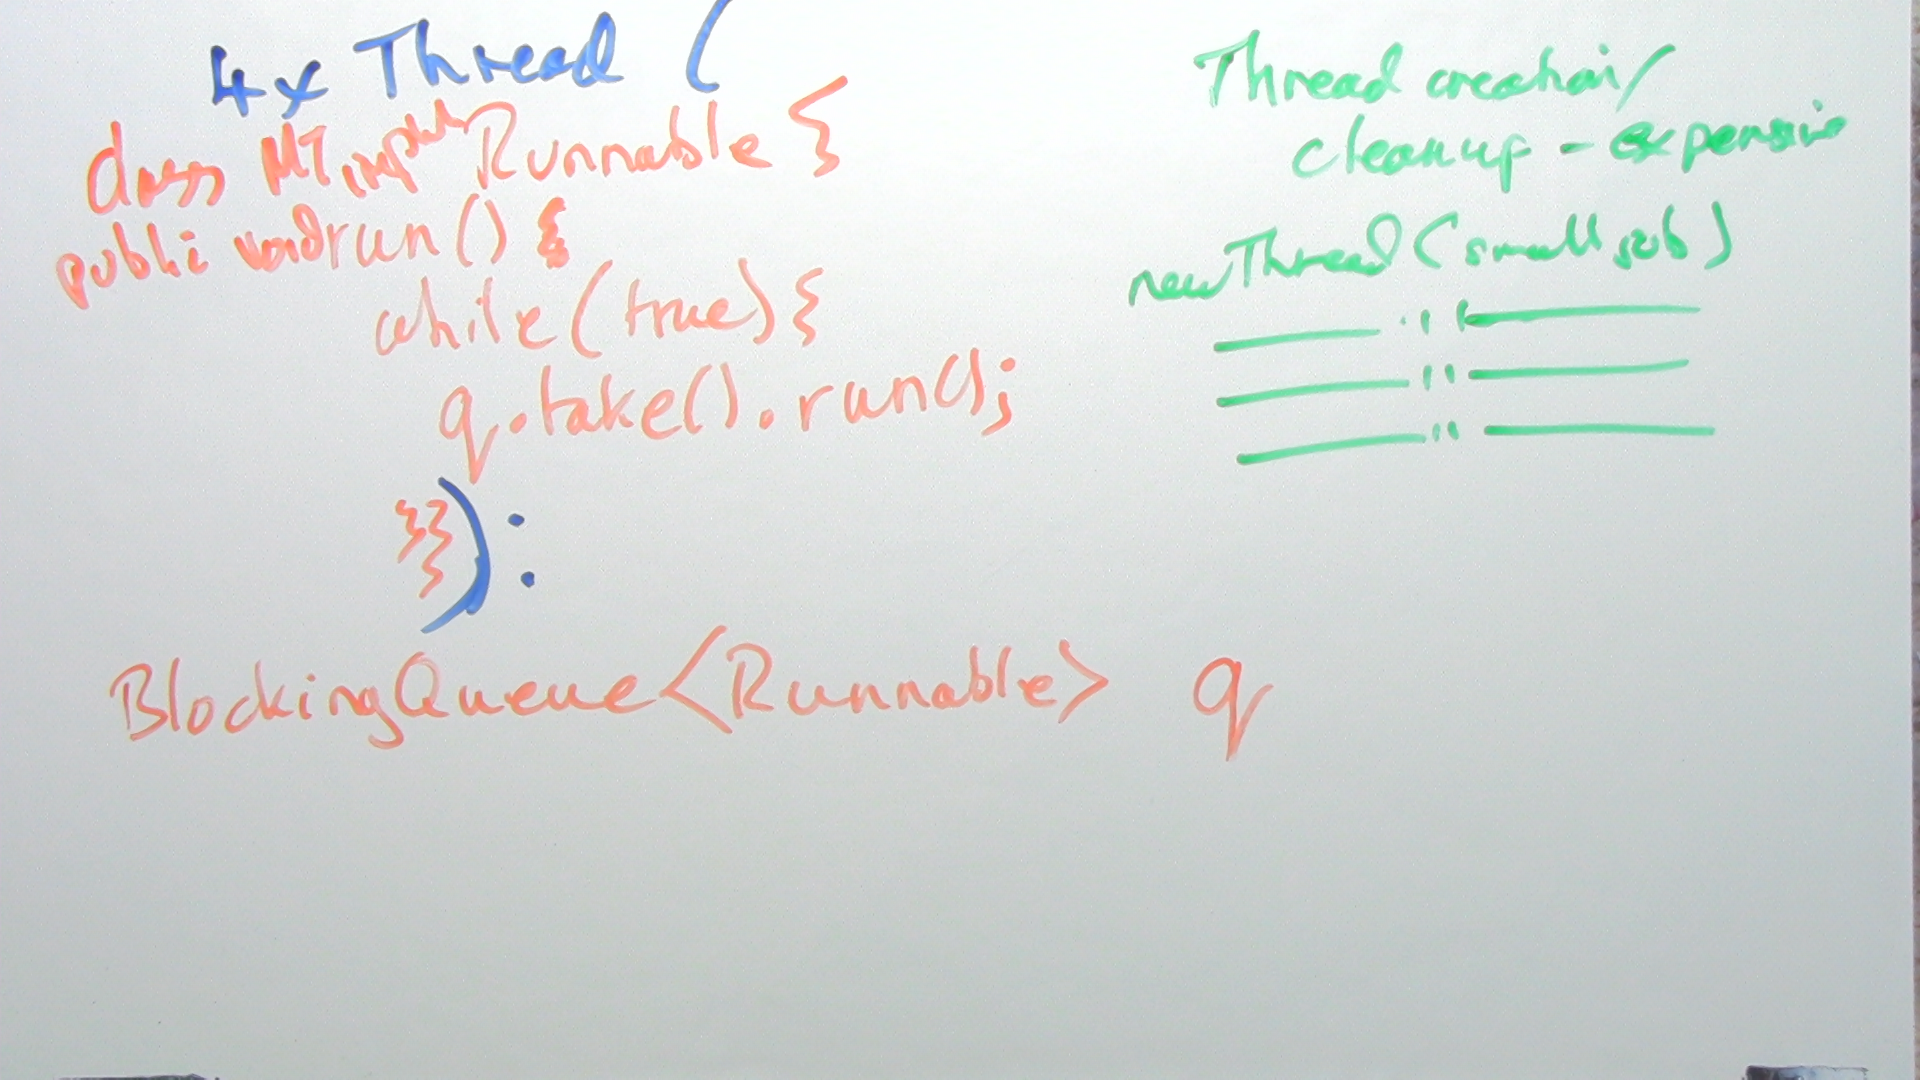 4x Thread (
class MT impl Runnable {
public void run() {
while(true){
q.take().run();
}}
}):
BlockingQueue<Runnable> q
Thread creation/
cleanup - expensive
new Thread(small job)
" "
" "
" "